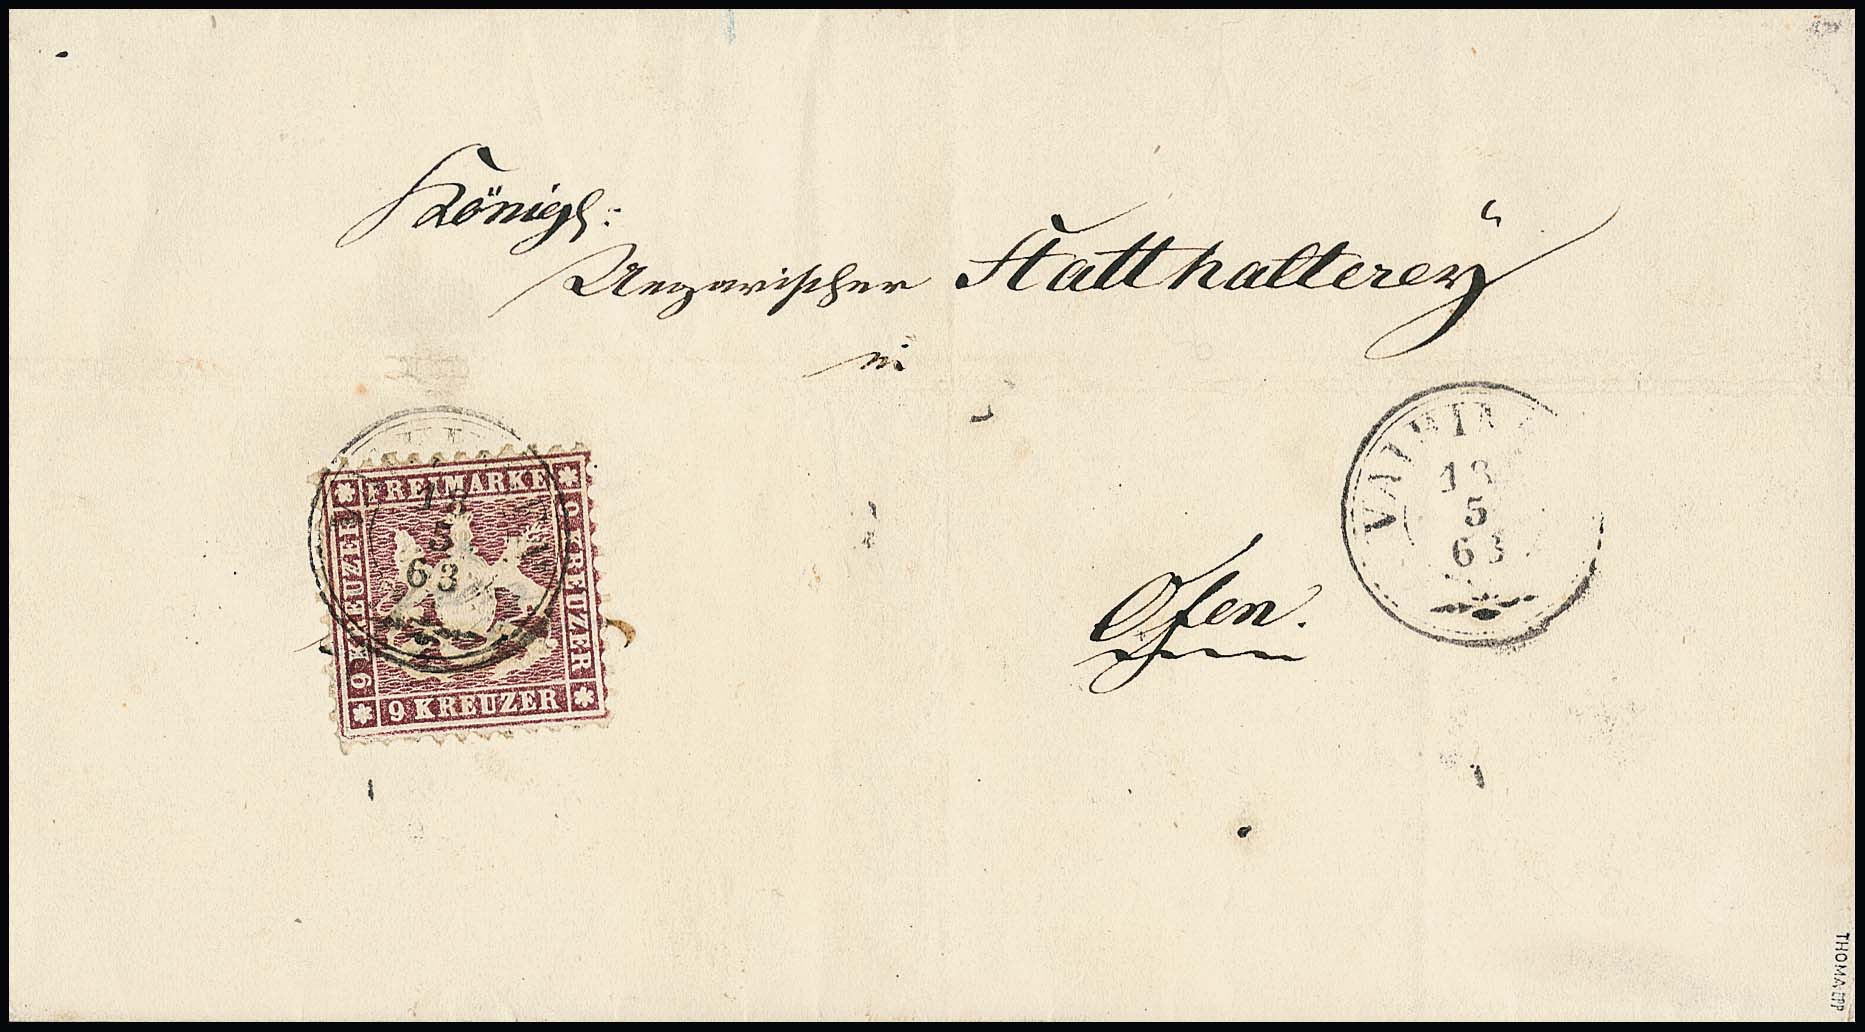 Königl:
Ungarischer Statthalterey
in
Ofen.
FREIMARKE
9 KREUZER
9 KREUZER
KREUZER
18
5
63
18
5
63
THOMA BPP